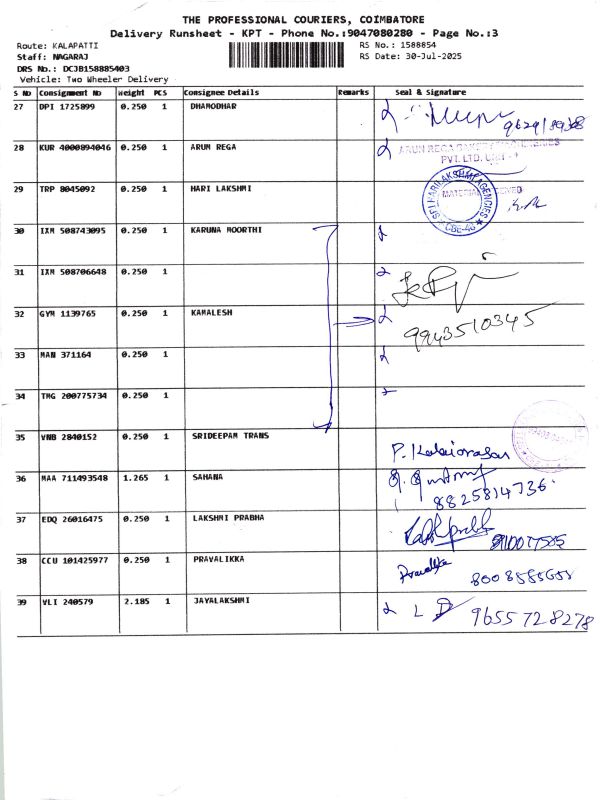 THE PROFESSIONAL COURIERS, COIMBATORE
Delivery Runsheet - KPT - Phone No.:9047080280 - Page No.:3
Route: KALAPATTI RS No.: 1588854
Staff: NAGARAJ RS Date: 30-Jul-2025
DRS No.: DCJB158885403
Vehicle: Two Wheeler Delivery
S No Consignment No Weight PCS Consignee Details Remarks Seal & Signature
27 DPI 1725899 0.250 1 DHAMODHAR
28 KUR 4000894046 0.250 1 ARUM REGA
PVT. LTD.
29 TRP 8045092 0.250 1 HARI LAKSHMI
SRI HARI LAKSHMI AGENCIES
CBE-48
30 IXM 508743095 0.250 1 KARUNA MOORTHI
31 IXM 508706648 0.250 1
32 GYM 1139765 0.250 1 KAMALESH
9943510345
33 MAN 371164 0.250 1
34 TMG 200775734 0.250 1
35 VNB 2840152 0.250 1 SRIDEEPAM TRANS
P. Kalaiarasan
36 MAA 711493548 1.265 1 SAHANA
8825814736
37 EDQ 26016475 0.250 1 LAKSHMI PRABHA
38 CCU 101425977 0.250 1 PRAVALIKKA
39 VLI 240579 2.185 1 JAYALAKSHMI
9655728278